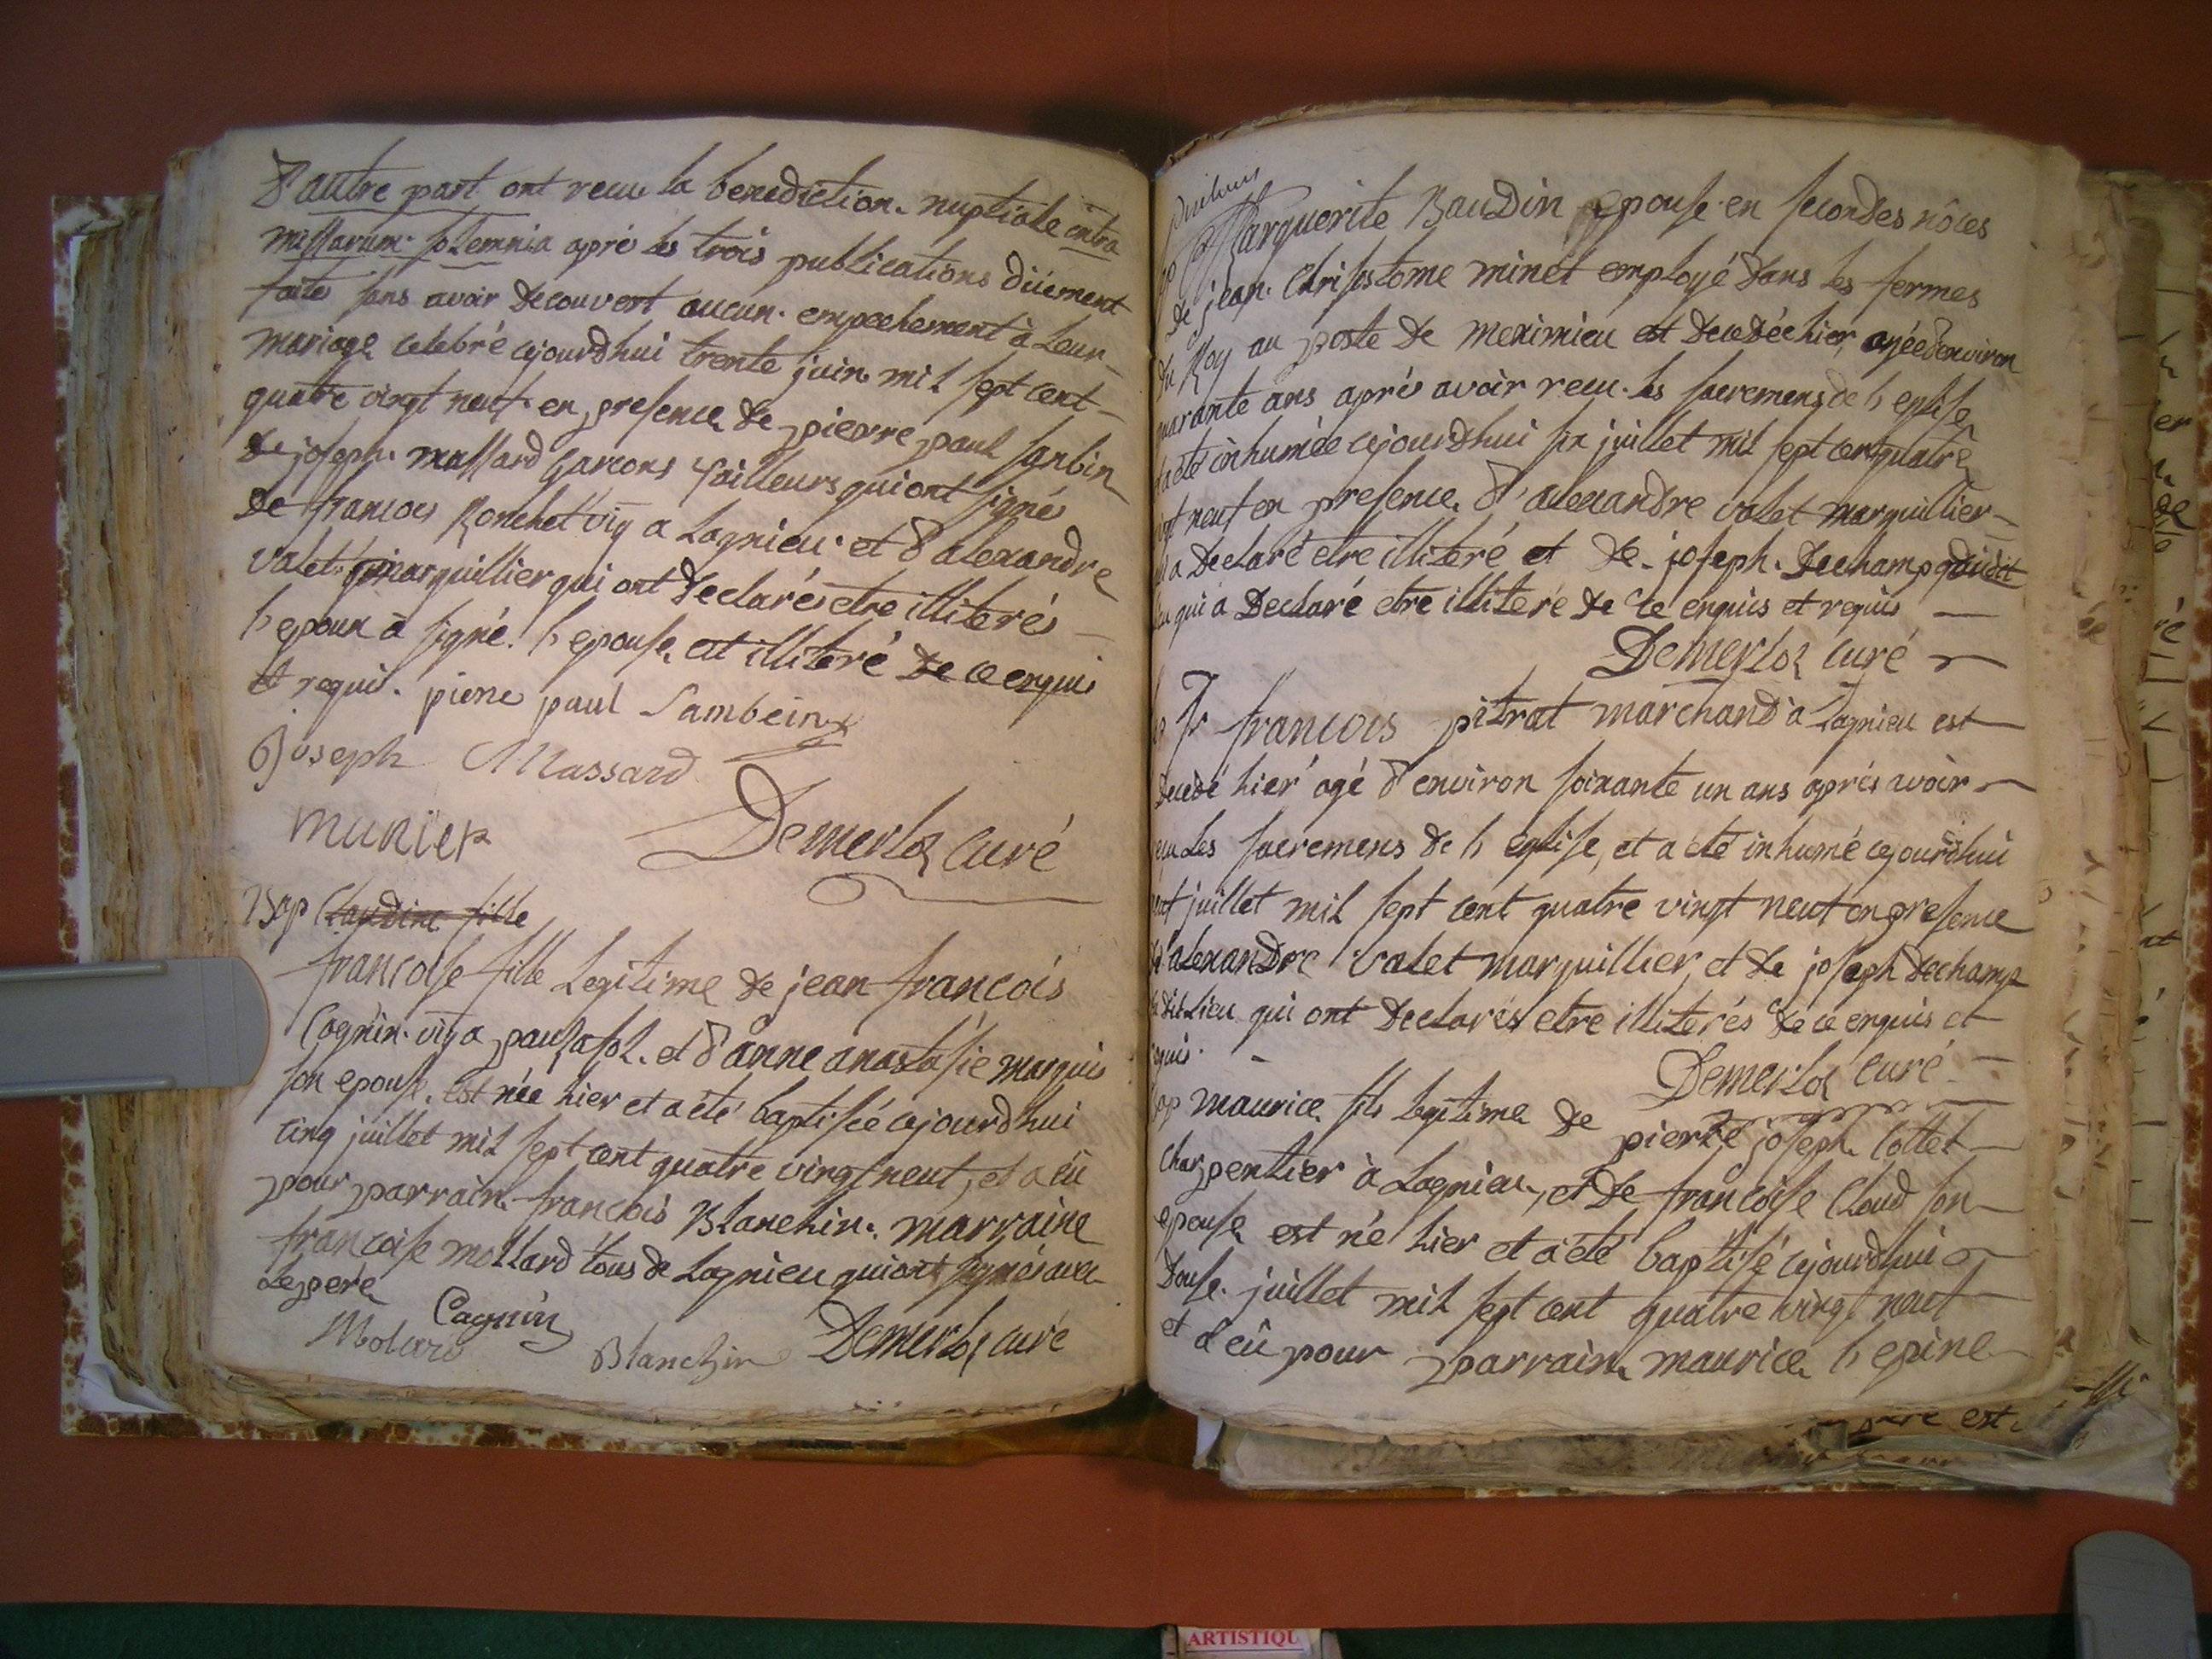 D'autre part ont recu la benediction nuptiale intra
missarum solemnia apré les trois publications düement
faites sans avoir decouvert aucun empechement à leur
mariage celebré cejourdhui trente juin mil sept cent
quatre vingt neuf en presence de pierre paul sanbin
de joseph massard garcons tailleurs qui ont signés
de francois Ronchet vig a Lagnieu et d'alexandre
valet marguillier qui ont declarés etre illiterés
l'epoux à signé. l'epouse est illiteré de ce enquis
et requis. piere paul Sambein
Joseph Massard
munier Demerloz curé
Bap Claudine fille
francoise fille Legitime de jean francois
Cognin vig a pausafol et d'anne anastasie marquis
son epouse est née hier et a été baptisée cejourdhui
cinq juillet mil sept cent quatre vingt neuf, et a eû
pour parrain francois Blanchin. marraine
francoise mollard tous de Lagnieu qui ont signés avec
le pere
Cagnin
Molard Blanchin Demerloz curé
Marguerite Baudin epouse en secondes nôces
de jean Chrisostome minét employé dans les fermes
du Roy au poste de meximieu est decedée hier agée denviron
quarante ans aprés avoir recu les sacremens de l'eglise
a eté inhumée cejourdhui six juillet mil sept cent quatre
vingt neuf en presence d'alexandre valet marguillier
qui a declaré etre illiteré et de joseph dechamp dudit
lieu qui à declaré etre illiteré de ce enquis et requis
Demerloz curé
Sr francois pitrat marchand à Lagnieu est
decedé hier agé d'environ soixante un ans aprés avoir
recu Les sacremens de l'eglise, et a eté inhumé cejourdhui
neuf juillet mil sept cent quatre vingt neuf en presence
d'alexandre valet marguillier et de joseph dechamp
du dit Lieu qui ont declarés etre illiterés de ce enquis et
requis.
Demerloz curé
Bap maurice fils legitime de pierre joseph Collet
charpentier à Lagnieu, et de francoise Claud son
epouse est né hier et a été baptisé cejourdhui
douse juillet mil sept cent quatre vingt neuf
et a eû pour parrain maurice l'epine